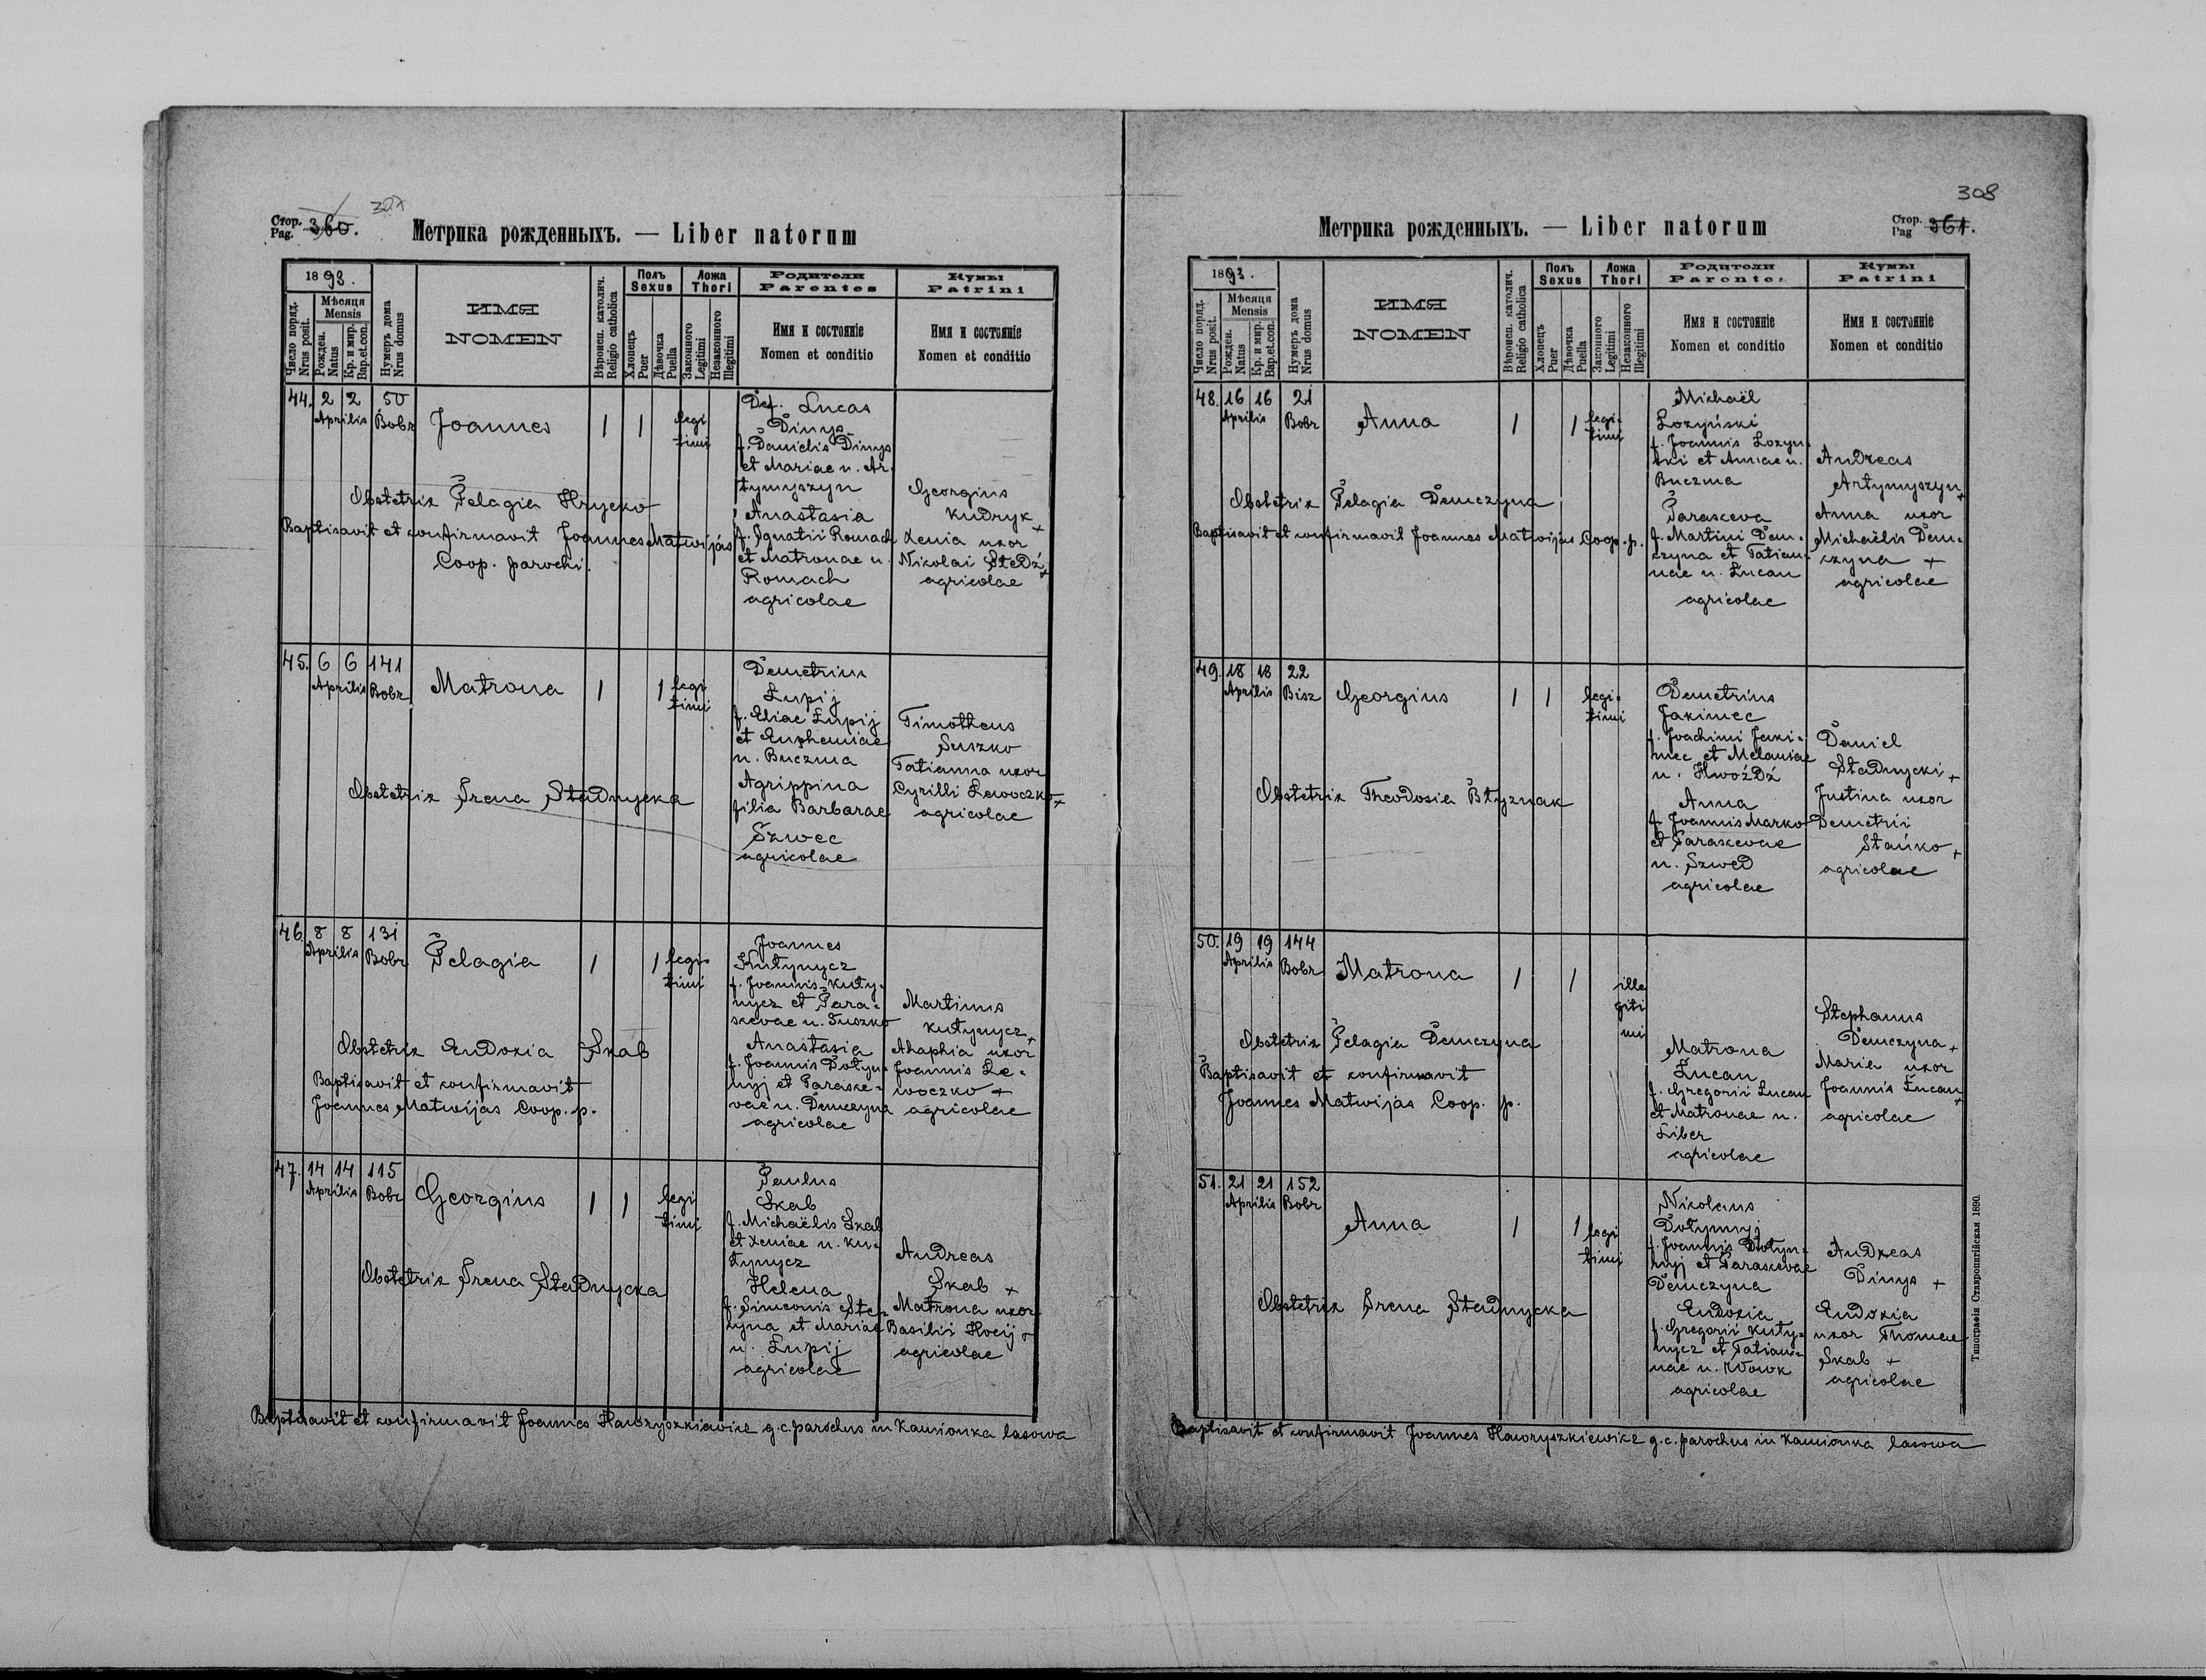 Стор.
Pag. 360.
307
Метрика рожденныхъ. — Liber natorum
1893.
Число поряд.
Nrus posit.
Мѣсяця
Mensis
Рожден.
Natus
Кр. и мир.
Bap.et.con.
Нумеръ дома
Nrus domus
ИМЯ
NOMEN
Вѣроисп. католич.
Religio catholica
Полъ
Sexus
Хлопецъ
Puer
Дѣвочка
Puella
Ложа
Thori
Законного
Legitimi
Незаконного
Illegitimi
Родители
Parentes
Имя и состояніе
Nomen et conditio
Кумы
Patrini
Имя и состояніе
Nomen et conditio
44. 2 2 50
Aprilis Bobr
Joannes
1 1
legi
timi
Def. Lucas
Dinys
f. Danielis Dinys
et Mariae n. Ar-
tymyszyn
Anastasia
f. Ignatii Romach
et Matronae n.
Romach
agricolae
Georgius
Kudryk +
Xenia uxor
Nikolai Stedź +
agricolae
Obstetrix Pelagia Hrycko
Baptisavit et confirmavit Joannes Matwijas
Coop. parochi.
45. 6 6 141
Aprilis Bobr
Matrona
1 1
legi
timi
Demetrius
Łupij
f. Eliae Łupij
et Euphemiae
n. Buczma
Agrippina
filia Barbarae
Szwec
agricolae
Timotheus
Suszko
Tatianna uxor
Cyrilli Lewoczko +
agricolae
Obstetrix Irena Stadnycka
46. 8 8 131
Aprilis Bobr
Pelagia
1 1
legi-
timi
Joannes
Kutynycz
f. Joannis Kuty-
nycz et Para-
skevae n. Suszko
Anastasia
f. Joannis Dotyn-
nyj et Paraske-
vae n. Demczyna
agricolae
Martinus
Kutynycz +
Ahaphia uxor
Joannis Le-
woczko +
agricolae
Obstetrix Eudoxia Skab
Baptisavit et confirmavit
Joannes Matwijas Coop. p.
47. 14 14 115
Aprilis Bobr
Georgius
1 1
legi
timi
Paulus
Skab
f. Michaëlis Skab
et Xeniae n. Ku-
tynycz
Helena
f. Simeonis Stec-
zyna et Mariae
n. Łupij
agricolae
Andreas
Skab +
Matrona uxor
Basilii Hocij +
agricolae
Obstetrix Irena Stadnycka
Baptisavit et confirmavit Joannes Hawryszkiewicz g.c. parochus in Kamionka lasowa
308
Метрика рожденныхъ. — Liber natorum
Стор.
Pag 361.
1893.
Число поряд.
Nrus posit.
Мѣсяця
Mensis
Рожден.
Natus
Кр. и мир.
Bap.et.con.
Нумеръ дома
Nrus domus
ИМЯ
NOMEN
Вѣроисп. католич.
Religio catholica
Полъ
Sexus
Хлопецъ
Puer
Дѣвочка
Puella
Ложа
Thori
Законного
Legitimi
Незаконного
Illegitimi
Родители
Parentes
Имя и состояніе
Nomen et conditio
Кумы
Patrini
Имя и состояніе
Nomen et conditio
48. 16 16 21
Aprilis Bobr
Anna
1 1
legi-
timi
Michaël
Lozyński
f. Joannis Lozyn-
ski et Annae n.
Buczma
Paraskeva
f. Martini Dem-
czyna et Tatian-
nae n. Łucan
agricolae
Andreas
Artymyszyn +
Anna uxor
Michaëlis Dem-
czyna +
agricolae
Obstetrix Pelagia Demczyna
Baptisavit et confirmavit Joannes Matwijas Coop. p.
49. 18 18 22
Aprilis Bisz
Georgius
1 1
legi-
timi
Demetrius
Jakimec
f. Joachimi Jaki-
mec et Melaniae
n. Hwoźdź
Anna
f. Joannis Marko
et Paraskevae
n. Szwed
agricolae
Daniel
Stadnycki +
Justina uxor
Demetrii
Stańko +
agricolae
Obstetrix Theodosia Błyznak
50. 19 19 144
Aprilis Bobr
Matrona
1 1
ille
giti
mi
Matrona
Łucan
f. Gregorii Łucan
et Matronae n.
Liber
agricolae
Stephanus
Demczyna +
Maria uxor
Joannis Łucan +
agricolae
Obstetrix Pelagia Demczyna
Baptisavit et confirmavit
Joannes Matwijas Coop. p.
51. 21 21 152
Aprilis Bobr
Anna
1 1
legi
timi
Nikolaus
Dotynnyj
f. Joannis Dotyn-
nyj et Paraskevae
Demczyna
Eudoxia
f. Gregorii Kuty-
nycz et Tatian-
nae n. Wowk
agricolae
Andreas
Dinys +
Eudoxia
uxor Thomae
Skab +
agricolae
Obstetrix Irena Stadnycka
Baptisavit et confirmavit Joannes Hawryszkiewicz g.c. parochus in Kamionka lasowa
Типографія Ставропигійская 1890.